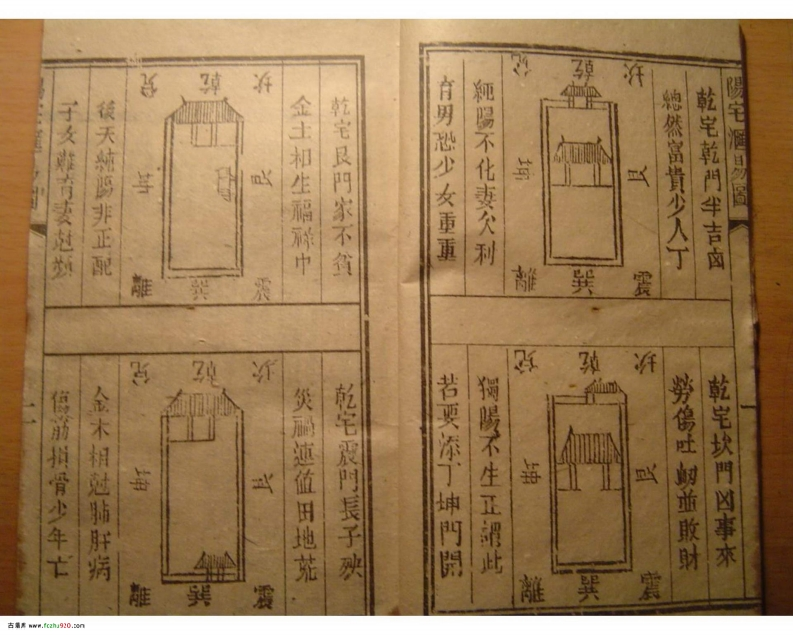 陽宅
一
乾宅乾門半吉凶
總然富貴少人丁
兌 乾 坎
坤 艮
離 巽 震
純陽不化妻欠利
育男恐少女重重
乾宅坎門凶事來
勞傷吐 並敗財
兌 乾 坎
坤 艮
離 巽 震
獨陽不生正謂此
若要添丁坤門開
乾宅艮門家不貧
金土和生福祿中
兌 乾 坎
坤 艮
離 巽 震
後天純陽非正配
子女難育妻尅
乾宅震門長子殃
災禍連值田地荒
兌 乾 坎
坤 艮
離 巽 震
金木相尅肺肝病
傷筋損骨少年亡
二
www.fczhu920.com